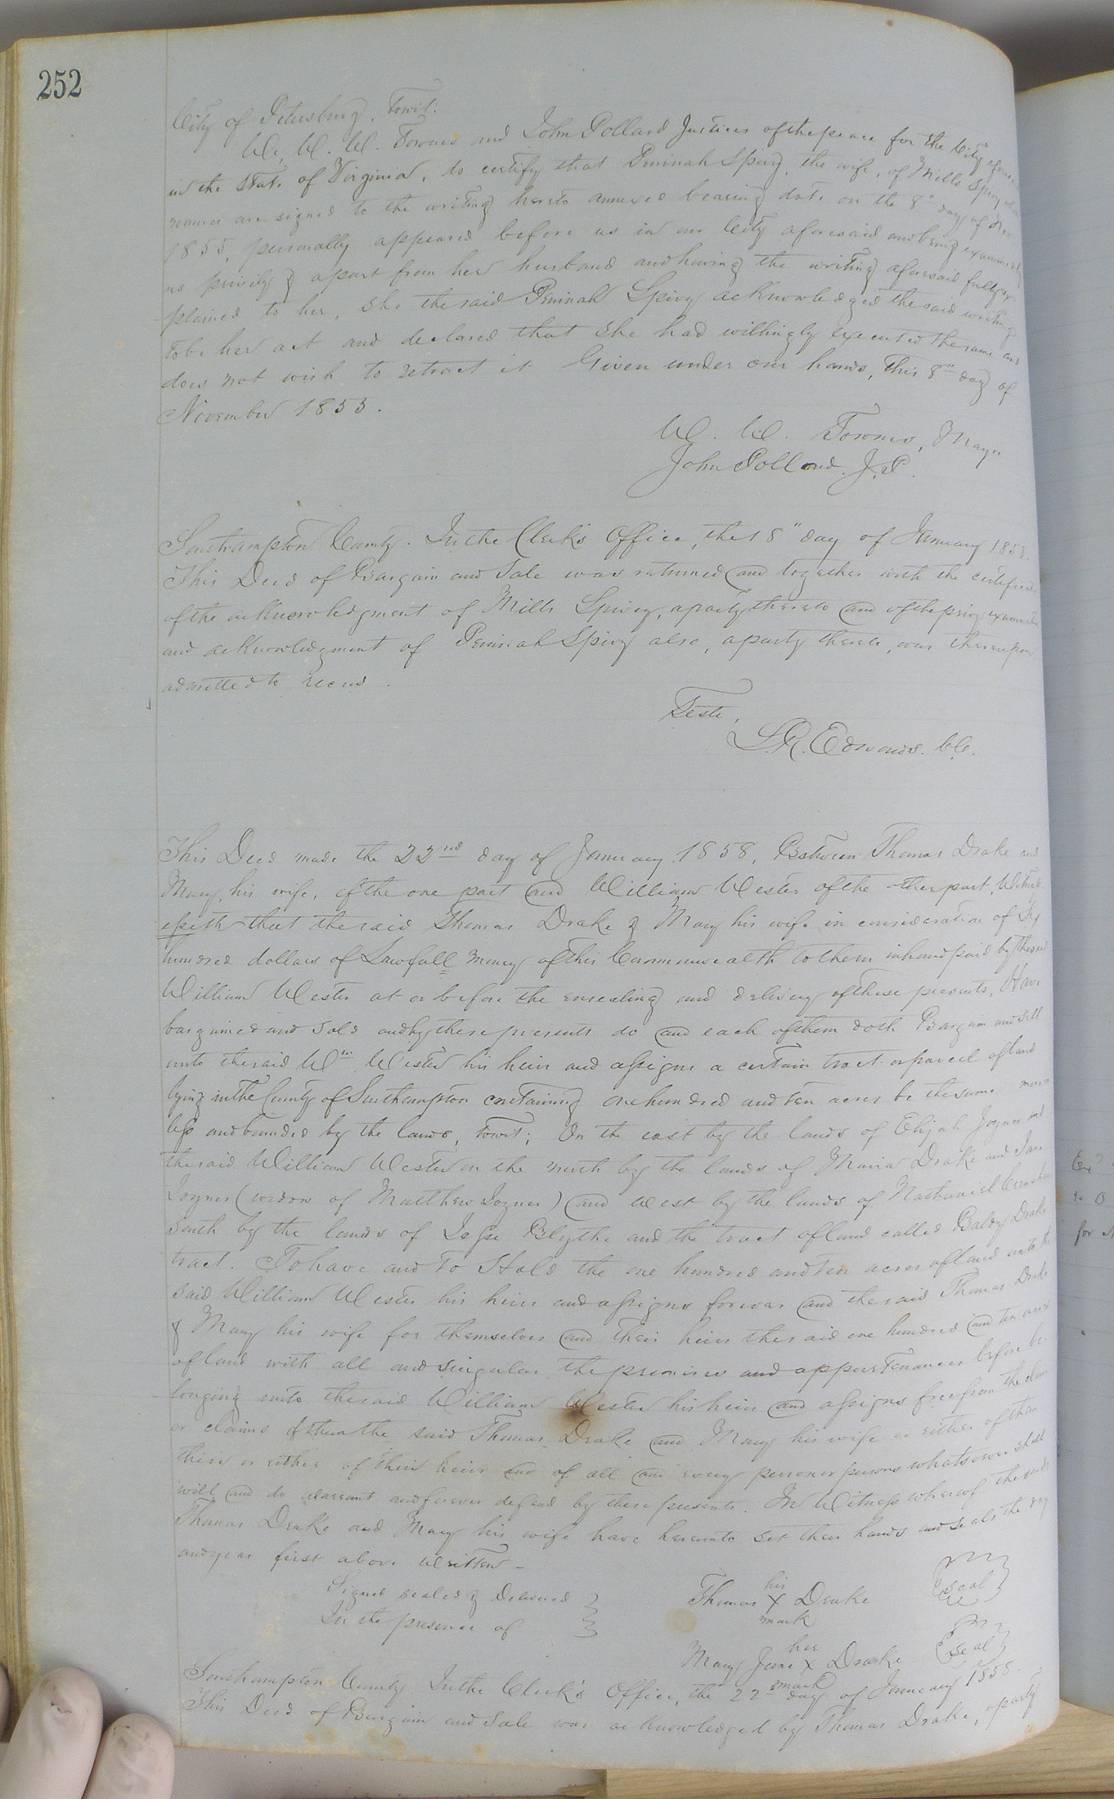 252
City of Petersburg, Towit:
We, W. W. Townes and John Pollard Justices of the peace for the City aforesaid
in the State of Virginia, do certify that Peninah Spivy, the wife, of Mills Spivy whose
names are signed to the writing hereto annexed bearing date on the 8th day of Nov
1855, personally appeared before us in our City aforesaid and being examined by
us privily & apart from her husband and having the writing aforesaid fully ex
plained to her, she the said Peninah Spivy acknowledged the said writing
to be her act and declared that she had willingly executed the same and
does not wish to retract it Given under our hands, this 8th day of
November 1855.
W. W. Townes, Mayor
John Pollard. J.P.
Southampton County. In the Clerk's Office, the 18" day of January 1858.
This Deed of Bargain and Sale was returned and together with the certificate
of the acknowledgment of Mills Spivey, a party thereto and of the privy examination
and acknowledgment of Peninah Spivy also, a party thereto, was thereupon
admitted to record.
Teste,
L. R. Edwards. C.C.
This Deed made the 22nd day of January 1858, Between Thomas Drake and
Mary, his wife, of the one part and William Wester of the other part, Witness
esseth that the said Thomas Drake & Mary his wife in consideration of Six
hundred dollars of Lawfull money of this Commonwealth to them in hand paid by the said
William Wester at or before the ensealing and delivery of these presents, Have
bargained and sold and by these presents do and each of them doth Bargain and Sell
unto the said Wm Wester his heirs and assigns a certain tract or parcel of land
lying in the County of Southampton containing one hundred and ten acres be the same more or
less and bounded by the lands, Towit; On the east by the lands of Elijah Joyner and
the said William Wester on the north by the lands of Maria Drake and Jane
Joyner (widow of Matthew Joyner) and west by the lands of Nathaniel
South by the lands of Jesse Blythe and the tract of land called Baldy Drake
tract. To have and To Hold the one hundred and ten acres of land unto the
said William Wester his heirs and assigns forever and the said Thomas Drake
& Mary his wife for themselves and their heirs the said one hundred and ten acres
of land with all and singular the premises and appurtenances before be
longing unto the said William Wester his heirs and assigns free from the claim
or claims of them the said Thomas Drake and Mary his wife or either of them
their or either of their heirs and of all and every person or persons whatsoever shall
will and do warrant and forever defend by these presents. In Witness whereof the said
Thomas Drake and Mary his wife have hereunto set their hands and seals the day
and year first above written -
Signed sealed & Delivered
In the presence of
his
Thomas X Drake Seal
mark
her
Mary Jane X Drake Seal
mark
Southampton County In the Clerk's Office, the 22nd day of January 1858.
This Deed of Bargain and Sale was acknowledged by Thomas Drake, a party
for